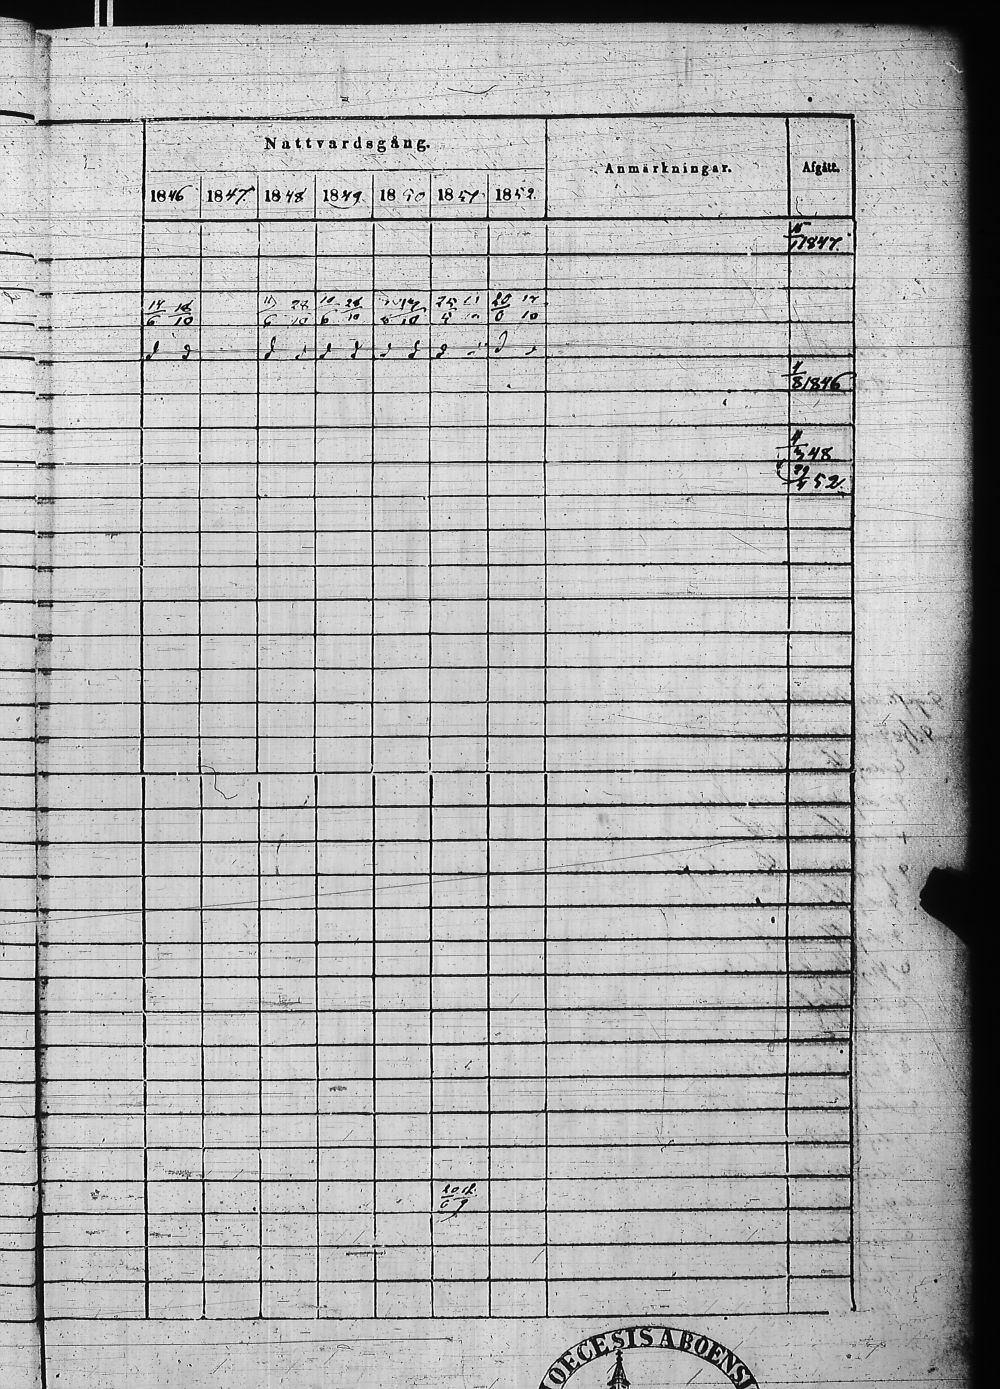 Nattvardsgång.
Anmärkningar. Afgått.
1846 1847. 1848 1849. 1850 1851 1852.
15/1 1847.
14/6 18/10 11/6 22/10 10/6 28/10 17/10 25/5 20/6 17/10
1/8 1846
4/5 48
29/4 52.
20/6 12/9
DIOECESIS ABOENSI